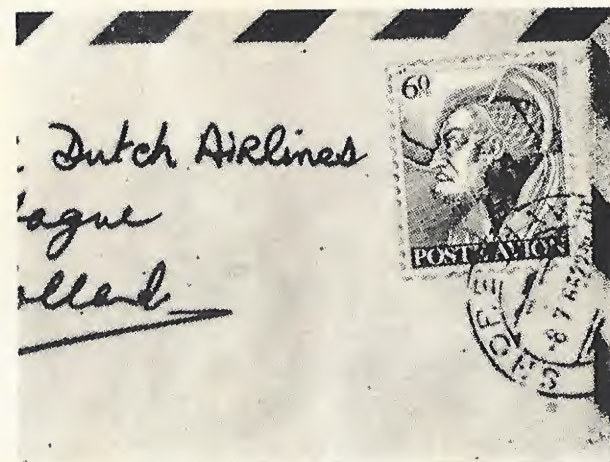 : Dutch Airlines
ague
olland
60
POST & AVION